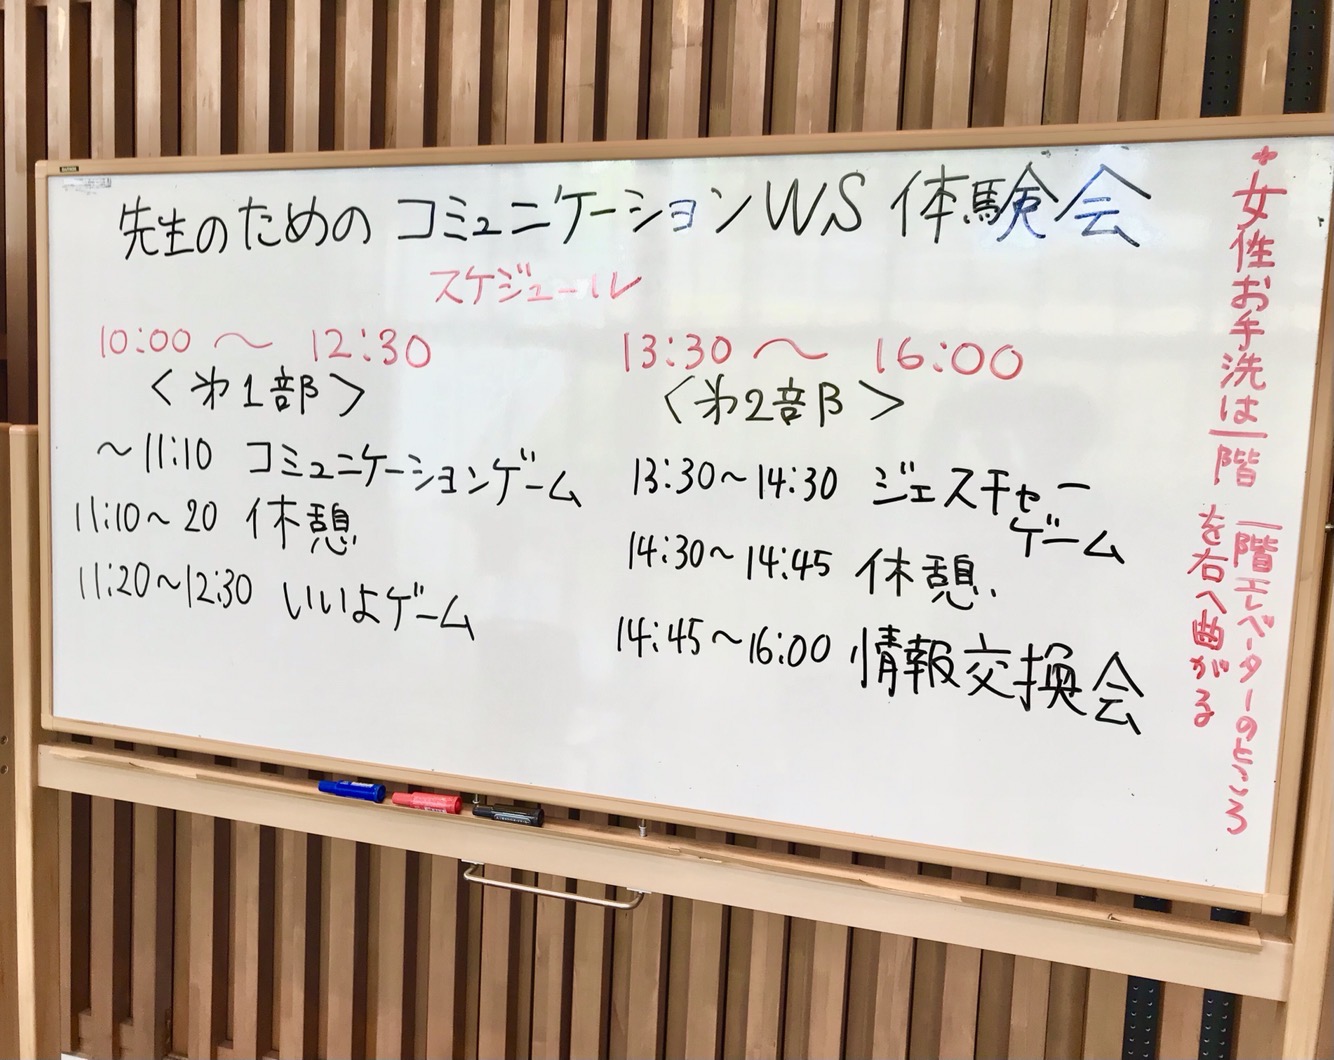 先生のための コミュニケーションWS 体験会
スケジュール
10:00 〜 12:30
＜第1部＞
〜11:10 コミュニケーションゲーム
11:10〜20 休憩
11:20〜12:30 いいよゲーム
13:30 〜 16:00
＜第2部＞
13:30〜14:30 ジェスチャー
ゲーム
14:30〜14:45 休憩
14:45〜16:00 情報交換会
女性お手洗は一階
一階エレベーターのところ
を右へ曲がる